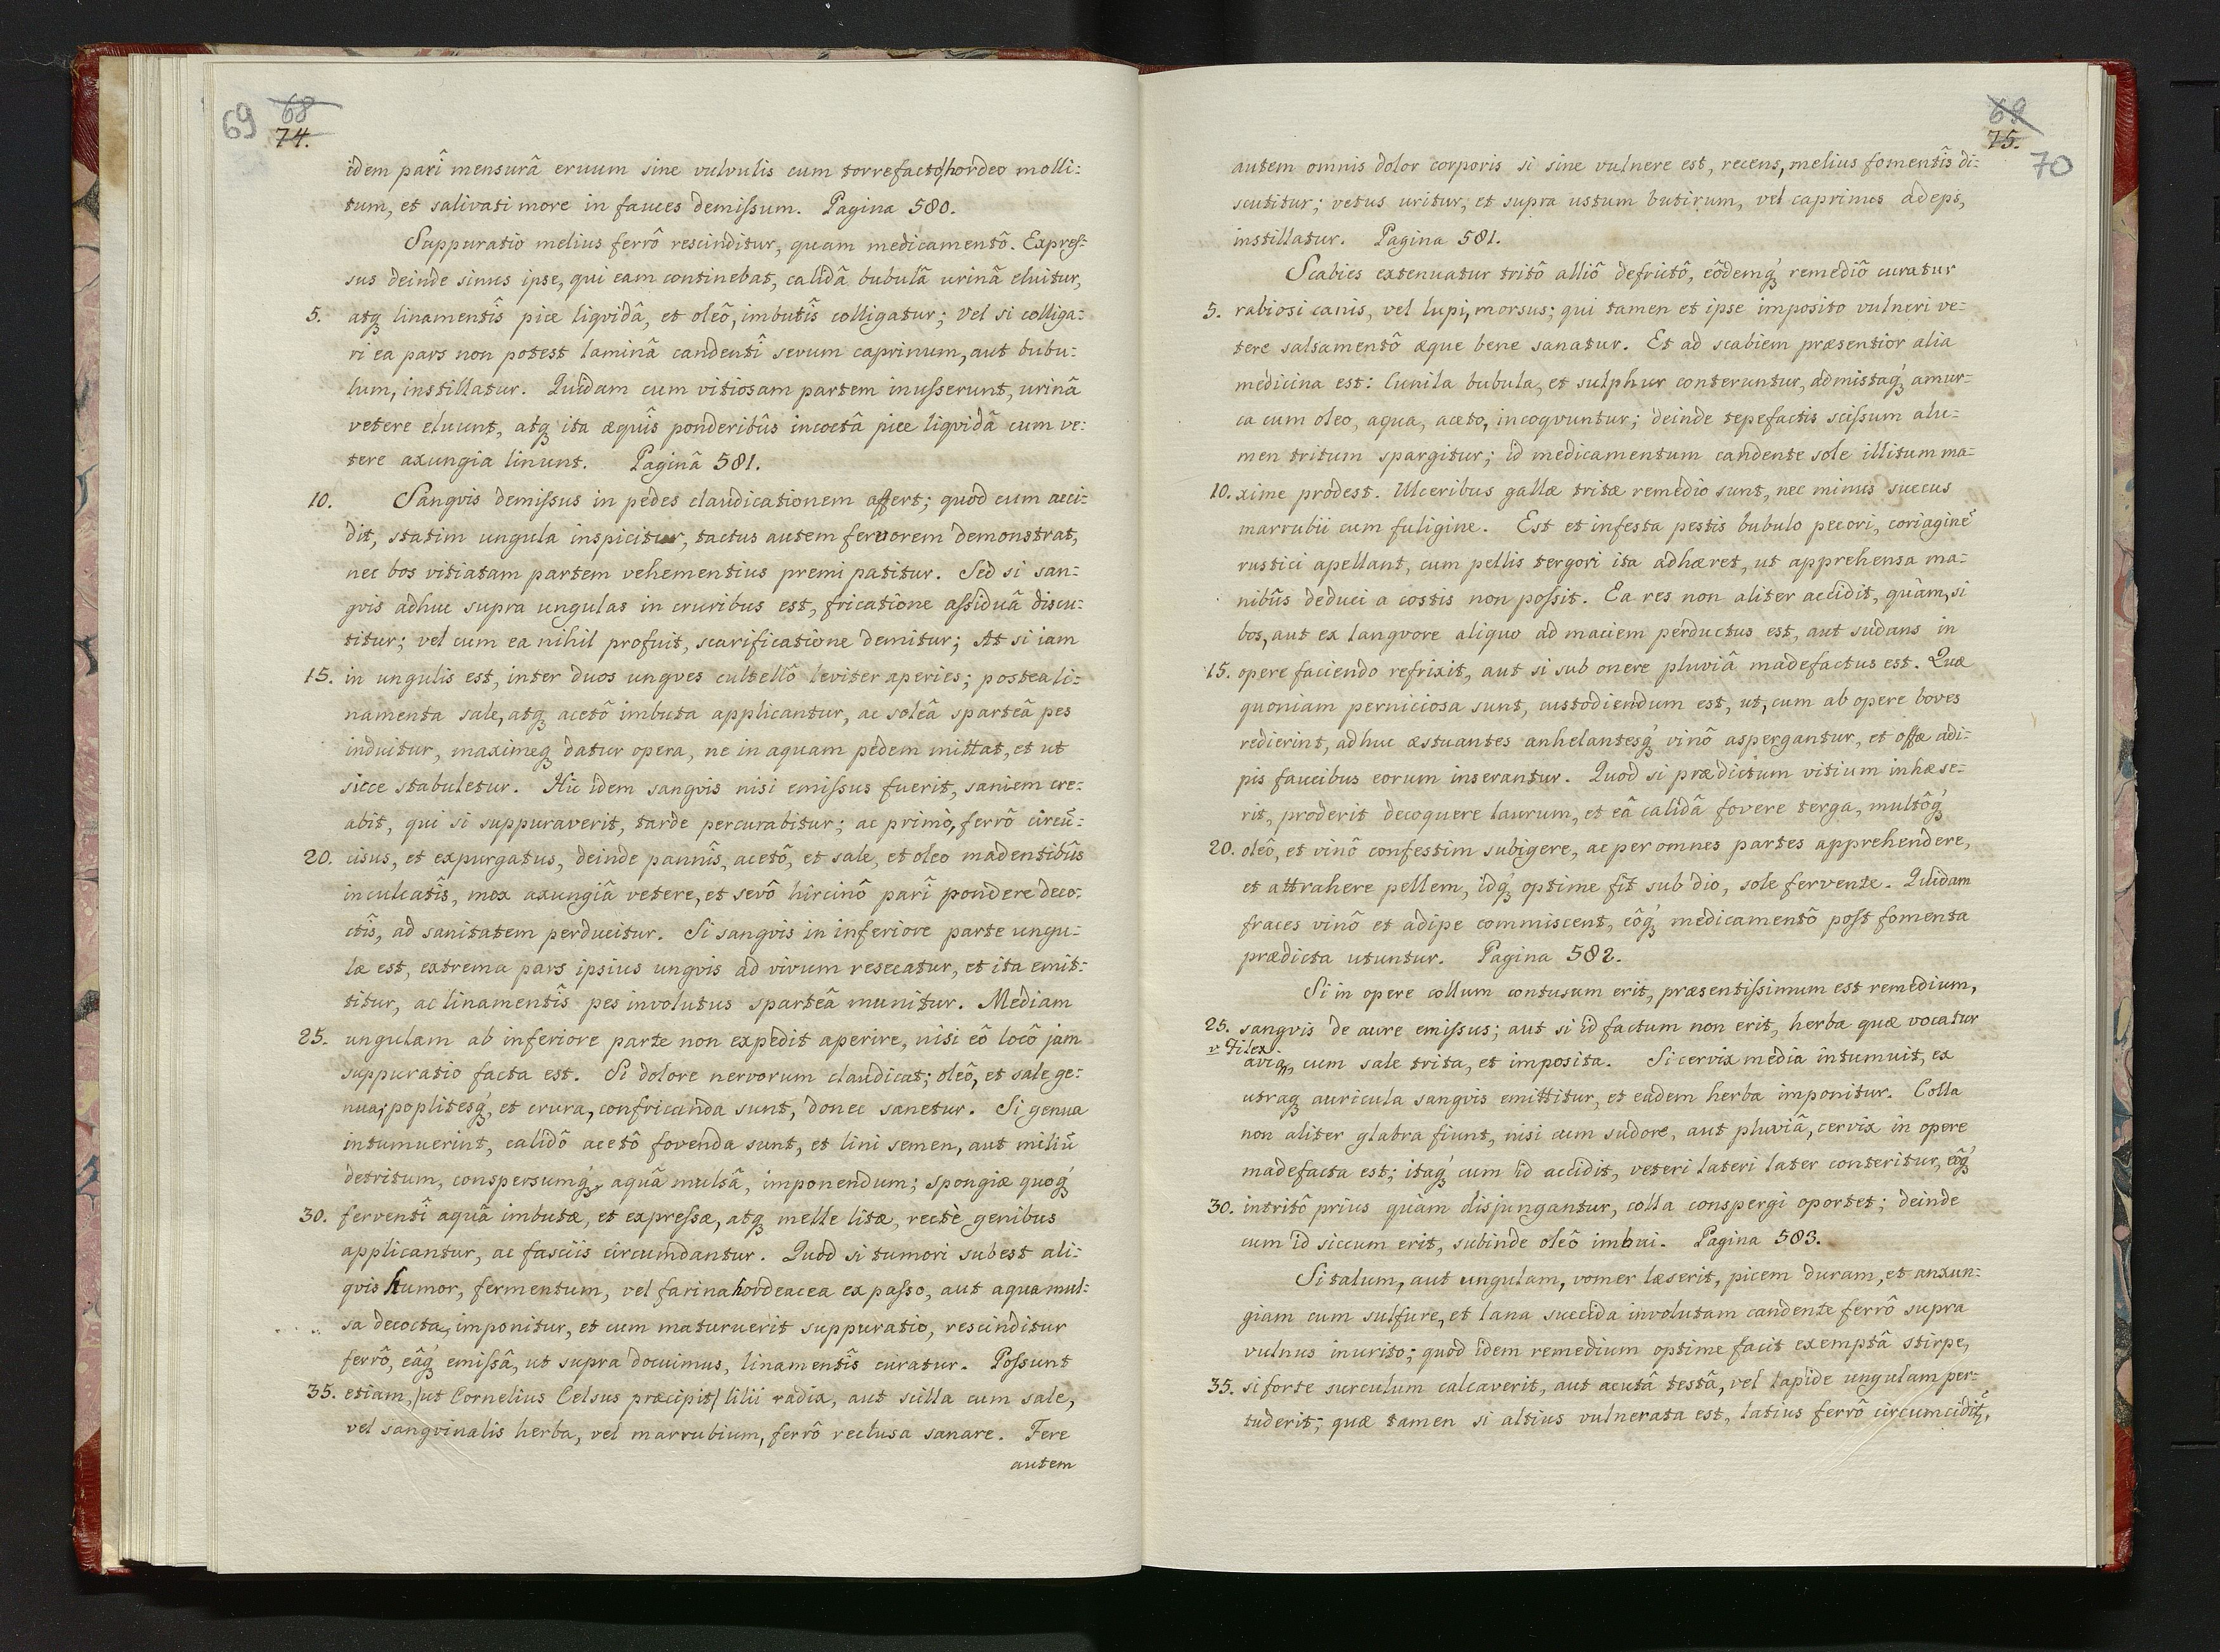 69 68
74.
idem parî mensurâ eruum sine vulvulis cum torrefacto hordeo molli:
tum, et salivati more in fauces demiſsum. Pagina 580.
Suppuratio melius ferrô rescinditur, quam medicamentô. Expreſ:
sus deinde sinus ipse, qui eam continebat, calidâ bubulâ urinâ eluitur,
5. atq́ linamentîs pice liqvidâ, et oleô, imbutîs colligatur; vel si colliga:
ri ea pars non potest laminâ candentî sevum caprinum, aut bubu:
lum, instillatur. Quidam cum vitiosam partem inuſserunt, urinâ
vetere eluunt, atq́ ita æquîs ponderibûs incoctâ pice liqvidâ cum ve:
tere axungia linunt. Paginâ 581.
10. Sangvis demiſsus in pedes claudicationem affert; quod cum acci:
dit, statim ungula inspicitur, tactus autem fervorem demonstrat,
nec bos vitiatam partem vehementius premi patitur. Sed si san:
gvis adhuc supra ungulas in cruribus est, fricatione aſsiduâ discu:
titur; vel cum ea nihil profuit, scarificatione demitur; At si iam
15. in ungulis est, inter duos ungves cultellô leviter aperies; postea li:
namenta sale, atq́ acetô imbuta applicantur, ac soleâ sparteâ pes
induitur, maximeq́ datur opera, ne in aquam pedem mittat, et ut
sicce stabuletur. Hic idem sangvis nisi emiſsus fuerit, saniem cre:
abit, qui si suppuraverit, tarde percurabitur; ac primò, ferrô circũ:
20. cisus, et expurgatus, deinde pannîs, acetô, et sale, et oleo madentibûs
inculcatîs, mox axungiâ vetere, et sevô hircinô parî pondere deco:
ctîs, ad sanitatem perducitur. Si sangvis in inferiore parte ungu:
læ est, extrema pars ipsius ungvis ad vivum resecatur, et ita emit:
titur, ac linamentîs pes involutus sparteâ munitur. Mediam
25. ungulam ab inferiore parte non expedit aperire, nisi eô locô jam
suppuratio facta est. Si dolore nervorum claudicat; oleô, et sale ge:
nua, poplitesq́, et crura, confricanda sunt, donec sanetur. Si genua
intumuerint, calidô acetô fovenda sunt, et lini semen, aut miliũ
detritum, conspersumq́, aquâ mulsâ, imponendum; spongiæ quoq́
30. ferventî aquâ imbutæ, et expreſsæ, atq́ melle litæ, rectè genibus
applicantur, ac fasciis circumdantur. Quod si tumori subest ali:
qvis humor, fermentum, vel farina hordeacea ex paſso, aut aqua mul:
sa decocta, imponitur, et cum maturuerit suppuratio, rescinditur
ferrô, eâq́ emiſsâ, ut supra docuimus, linamentîs curatur. Poſsunt
35. etiam, /ut Cornelius Celsus præcipit/ lilii radix, aut scilla cum sale,
vel sangvinalis herba, vel marrubium, ferrô reclusa sanare. Fere
autem
69
75.
70
autem omnis dolor corporis si sine vulnere est, recens, melius fomentîs di:
scutitur; vetus uritur, et supra ustum butirum, vel caprimus adeps,
instillatur. Pagina 581.
Scabies extenuatur tritô alliô defrictô, eôdemq́ remediô curatur
5. rabiosi canis, vel lupi, morsus; qui tamen et ipse imposito vulneri ve:
tere salsamentô æque bene sanatur. Et ad scabiem præsentior alia
medicina est: Cunila bubula, et sulphur conteruntur, admistaq́ amur:
ca cum oleo, aqua, aceto, incoqvuntur; deinde tepefactis sciſsum alu:
men tritum spargitur; id medicamentum candente sole illitum ma:
10. xime prodest. Ulceribus gallæ tritæ remedio sunt, nec minus succus
marrubii cum fuligine. Est et infesta pestis bubulo pecori, coriaginẽ
rustici apellant, cum pellis tergori ita adhæret, ut apprehensa ma:
nibûs deduci a costis non poſsit. Ea res non aliter accidit, quàm, si
bos, aut ex langvore aliquo ad maciem perductus est, aut sudans in
15. opere faciendo refrixit, aut si sub onere pluviâ madefactus est. Quæ
quoniam perniciosa sunt, custodiendum est, ut, cum ab opere boves
redierint, adhuc æstuantes anhelantesq́ vinô aspergantur, et offæ adi:
pis faucibus eorum inserantur. Quod si prædictum vitium inhæse:
rit, proderit decoquere laurum, et eâ calidâ fovere terga, multôq́
20. oleô, et vinô confestim subigere, ac per omnes partes apprehendere,
et attrahere pellem, idq́ optime fit sub dio, sole fervente. Quidam
fraces vinô et adipe commiscent, eôq́ medicamentô post fomenta
prædicta utuntur. Pagina 582.
Si in opere collum contusum erit, præsentiſsimum est remedium,
25. sangvis de aure emiſsus; aut si id factum non erit, herba quæ vocatur
v Filex
avia, cum sale trita, et imposita. Si cervix media intumuit, ex
utraq́ auricula sangvis emittitur, et eadem herba imponitur. Colla
non aliter glabra fiunt, nisi cum sudore, aut pluviâ, cervix in opere
madefacta est; itaq́ cum id accidit, veteri lateri later conteritur, eôq́
30. intritô prius quàm disjungantur, colla conspergi oportet; deinde
cum id siccum erit, subinde oleô imbui. Pagina 583.
Si talum, aut ungulam, vomer læserit, picem duram, et anxun:
giam cum sulfure, et lana succida involutam candente ferrô supra
vulnus inurito; quod idem remedium optime facit exemptâ stirpe,
35. si forte surculum calcaverit, aut acutâ testâ, vel lapide ungulam per:
tuderit; quæ tamen si altius vulnerata est, latius ferrô circumcidit̃,